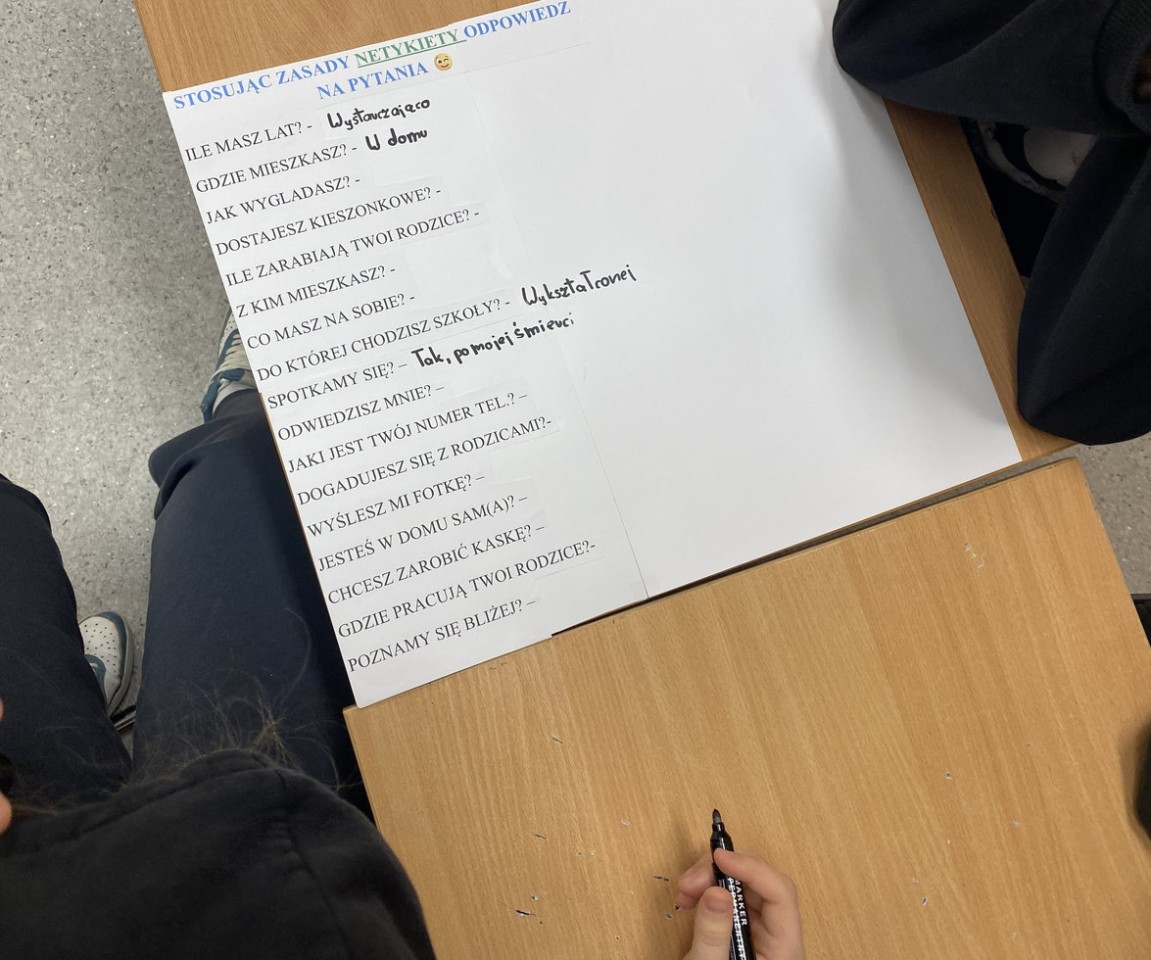 STOSUJĄC ZASADY NETYKIETY ODPOWIEDZ
NA PYTANIA 😉
ILE MASZ LAT? - Wystarczająco
GDZIE MIESZKASZ? - W domu
JAK WYGLADASZ? -
DOSTAJESZ KIESZONKOWE? -
ILE ZARABIAJĄ TWOI RODZICE? -
Z KIM MIESZKASZ? -
CO MASZ NA SOBIE? -
DO KTÓREJ CHODZISZ SZKOŁY? - Wykształconej
SPOTKAMY SIĘ? – Tak, po mojej śmierci
ODWIEDZISZ MNIE? –
JAKI JEST TWÓJ NUMER TEL.? –
DOGADUJESZ SIĘ Z RODZICAMI?-
WYŚLESZ MI FOTKĘ? –
JESTEŚ W DOMU SAM(A)? –
CHCESZ ZAROBIĆ KASKĘ? –
GDZIE PRACUJĄ TWOI RODZICE?-
POZNAMY SIĘ BLIŻEJ? –